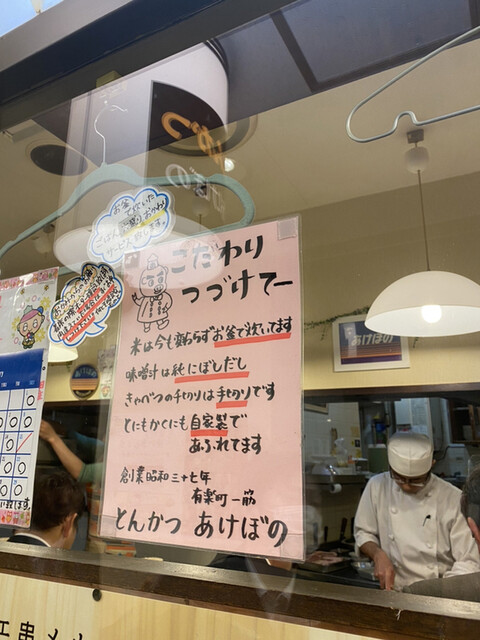 こだわり
つづけてー
米は今も変わらずお釜で炊いてます
味噌汁は純にぼしだし
きゃべつの千切りは手切りです
とにもかくにも自家製で
あふれてます
創業昭和三十七年
有楽町一筋
とんかつ あけぼの
お釜で炊いた
ごはん
おかわり
サービス
あけぼの